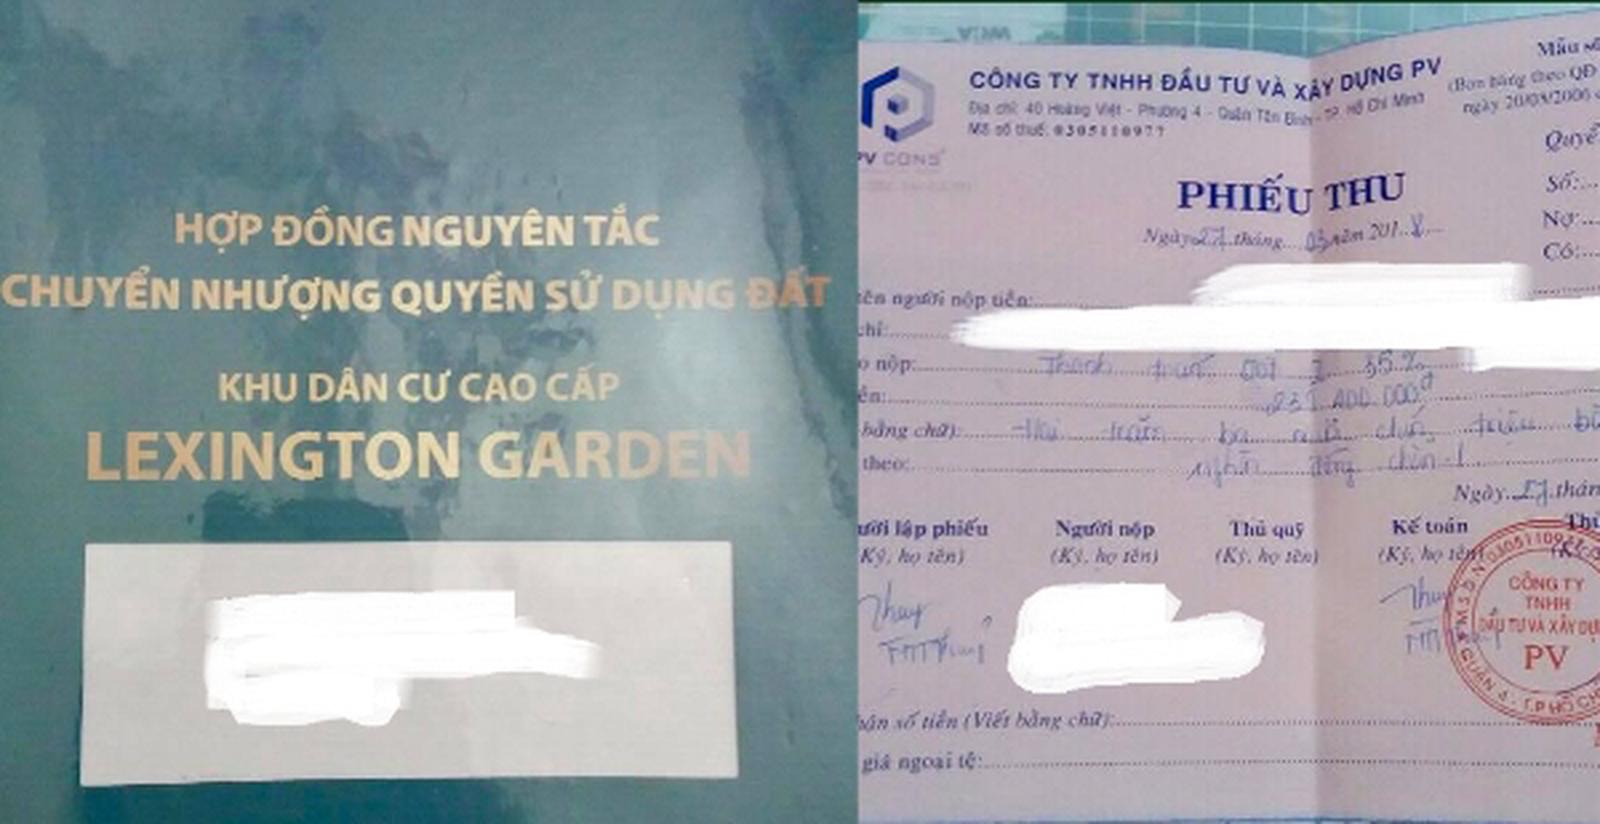 HỢP ĐỒNG NGUYÊN TẮC
CHUYỂN NHƯỢNG QUYỀN SỬ DỤNG ĐẤT
KHU DÂN CƯ CAO CẤP
LEXINGTON GARDEN
CÔNG TY TNHH ĐẦU TƯ VÀ XÂY DỰNG PV
Địa chỉ: 40 Hoàng Việt - Phường 4 - Quận Tân Bình - TP. Hồ Chí Minh
Mã số thuế: 0305110977
PV CONS
Mẫu số
(Ban hàng theo QĐ
ngày 20/03/2006
Quyể
Số:...
Nợ:...
Có:...
PHIẾU THU
Ngày 27 tháng 03 năm 201 8
ên người nộp tiền:
chỉ:
o nộp: Thanh toán đợt 2 35%
ền: 239.400.000đ
bằng chữ): Hai trăm ba chín triệu
theo: nghìn đồng chẵn
Ngày 27 thán
ười lập phiếu
Người nộp
Thủ quỹ
Kế toán
Thủ
Ký, họ tên)
(Ký, họ tên)
(Ký, họ tên)
(Ký, họ tên)
Thuy
Thuy
CÔNG TY
TNHH
ĐẦU TƯ VÀ XÂY DỰ
PV
QUẬN 4 - T.P HỒ CH
hận số tiền (Viết bằng chữ):
giá ngoại tệ: